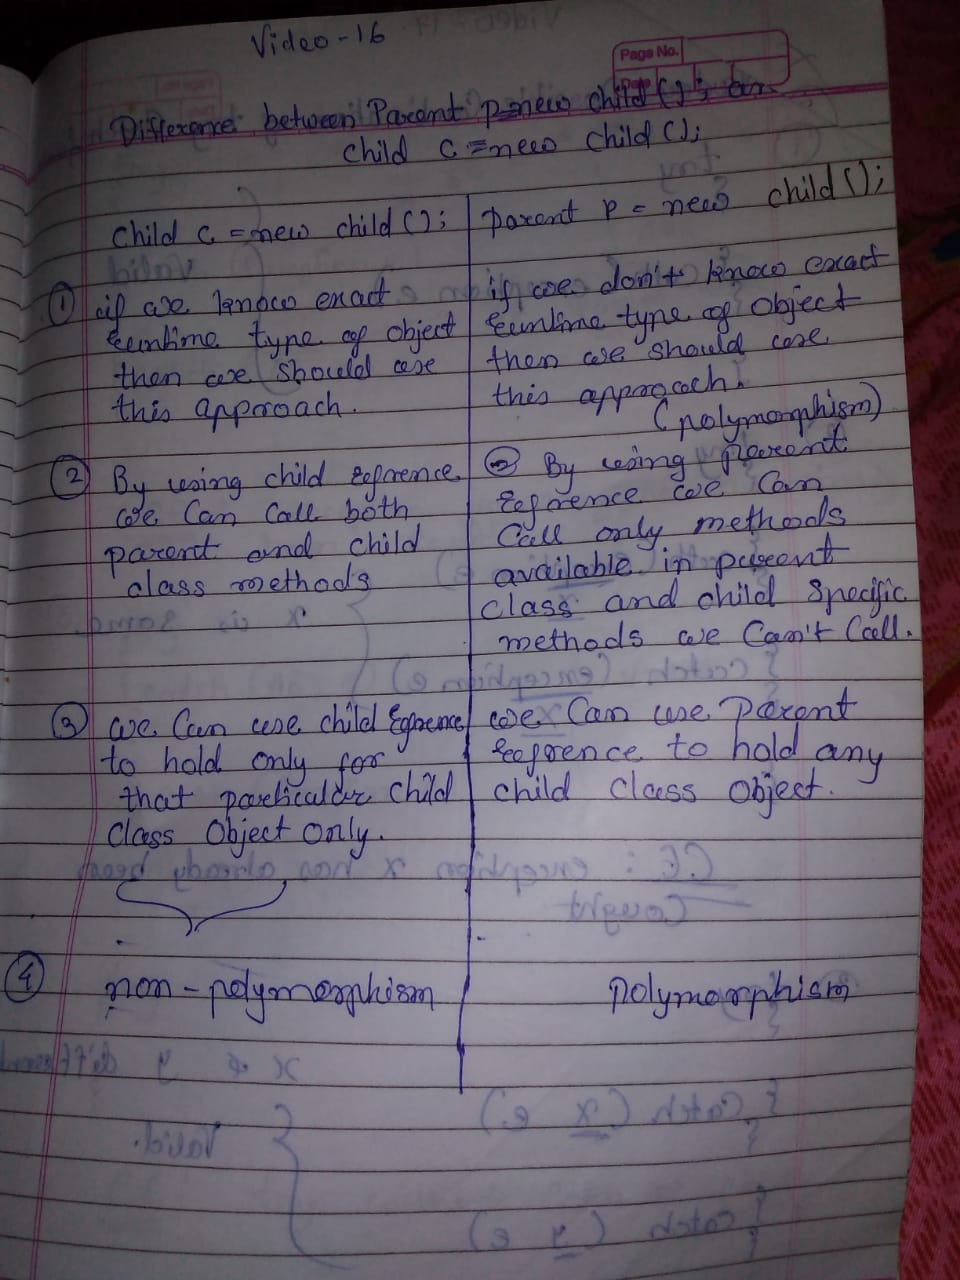 Video-16
Page No.
Date
Difference between Parent p=new child(); an
child c=new child();
child c=new child();
parent p = new child();
① if we know exact
runtime type of object
then we should use
this approach.
if we don't know exact
runtime type of object
then we should use
this approach.
(polymorphism)
② By using child refrence
we can call both
parent and child
class methods
② By using parent
refrence we can
call only methods
available in parent
class and child specific
methods we can't call.
③ we can use child refrence
to hold only for
that particular child
class object only.
we can use parent
refrence to hold any
child class object.
④ non-polymorphism
polymorphism